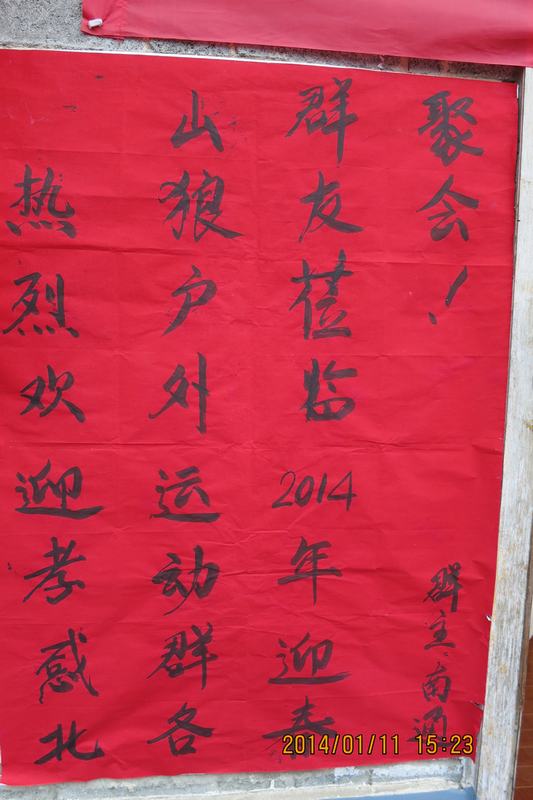 热烈欢迎孝感北
山狼户外运动群各
群友莅临2014年迎春
聚会！
群主:南
2014/01/11 15:23